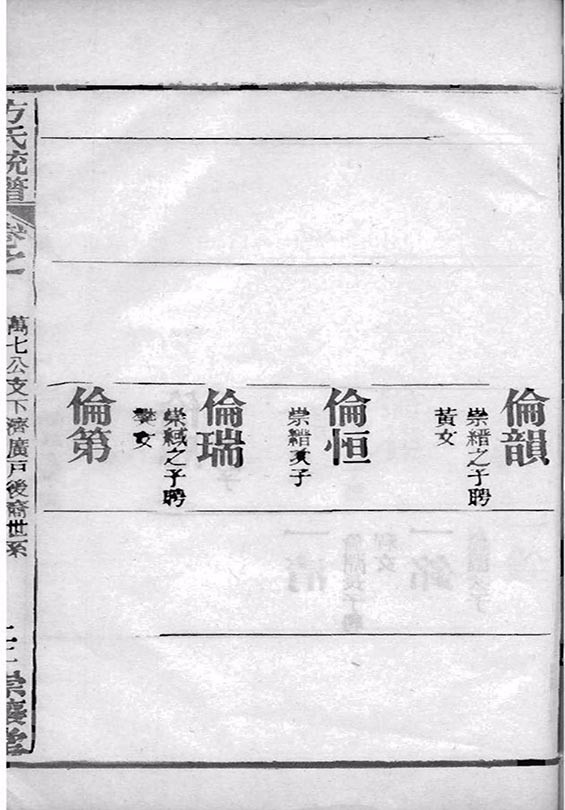 倫韻
崇縉之子聘
黃女
倫恒
崇縉次子
倫瑞
崇緎之子聘
樊女
倫第
方氏統譜
卷之
萬七公支下濟廣戶後裔世系
崇讓堂